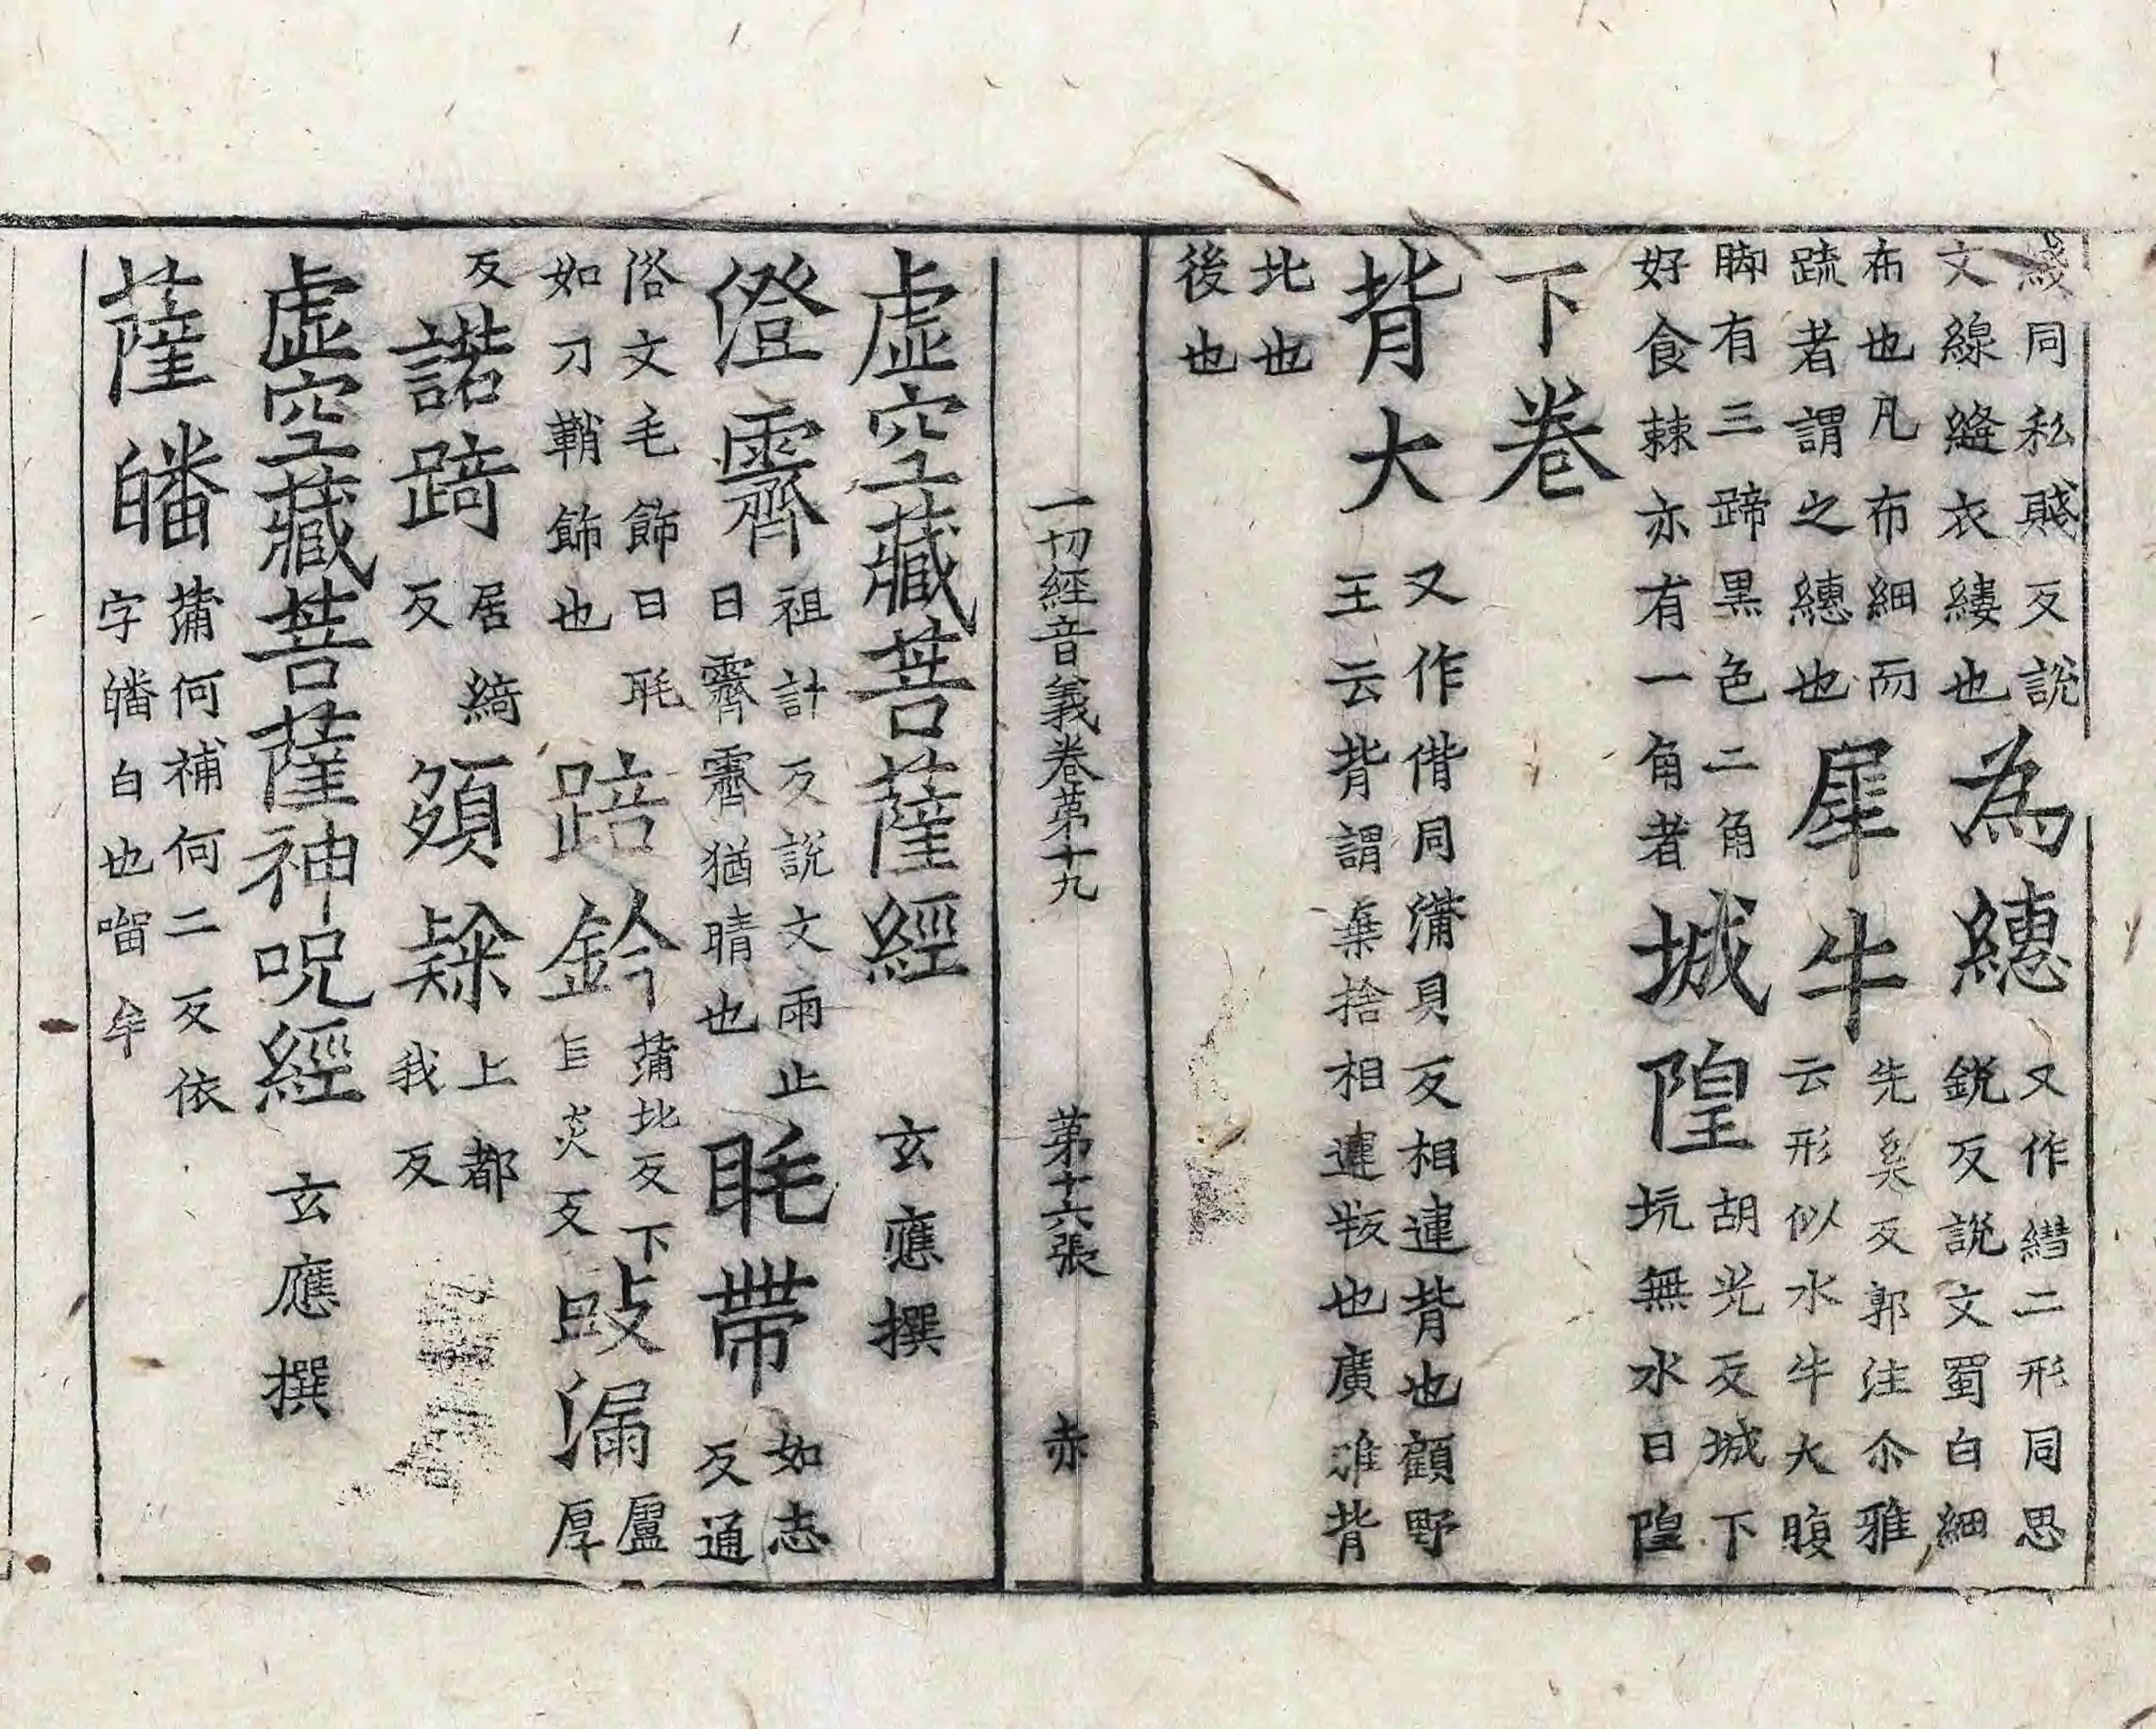 綫同私賤反說文線縫衣縷也為繐又作繐二形同思銳反說文蜀白細
布也凡布細而疏者謂之繐也犀牛先奚反郭注尒雅云形似水牛大腹
脚有三蹄黑色二角好食棘亦有一角者城隍胡光反城下坑無水曰隍
下卷
背大又作偝同蒲貝反相違背也顧野王云背謂棄捨相違叛也廣雅背
北也後也
一切經音義卷第十九 第十六張 赤
虛空藏菩薩經 玄應撰
澄霽祖計反說文雨止曰霽霽猶晴也毦帶如志反通
俗文毛飾曰毦如刀鞘飾也踣鈴蒲北反下巨炎反䟦漏盧厚
反諾踦居綺反頞躲上都我反
虛空藏菩薩神呪經 玄應撰
薩皤蒲何補何二反依字皤白也㗰牟